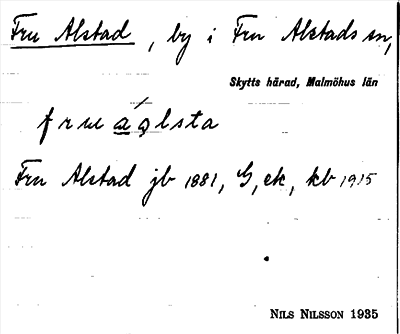 Fru Alstad, by i Fru Alstads sn,
Skytts härad, Malmöhus län
frua̲ ą́lsta
Fru Alstad jb 1881, G, ek, kb 1915
NILS NILSSON 1935